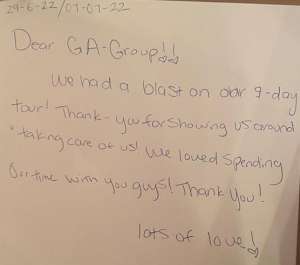 29-6-22/07-07-22
Dear GA-Group!!
We had a blast on our 9-day
tour! Thank-you for showing us around
+ taking care of us! We loved spending
Our time with you guys! Thank You!
lots of love!